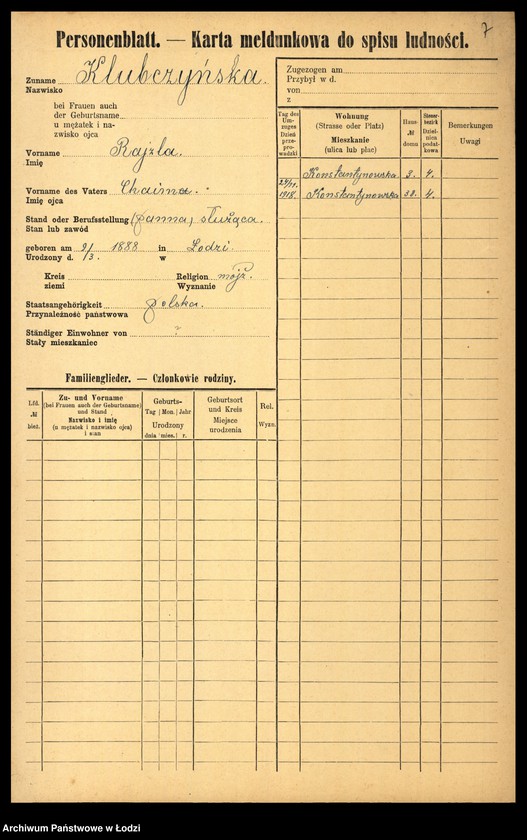 7
Personenblatt. — Karta meldunkowa do spisu ludności.
Zuname Klubczyńska.
Nazwisko
bei Frauen auch
der Geburtsname
u mężatek i na-
zwisko ojca
Vorname Rajzla.
Imię
Vorname des Vaters Chaima.
Imię ojca
Stand oder Berufsstellung (panna) służąca.
Stan lub zawód
geboren am 9/3. 1888 in Łodzi.
Urodzony d. w
Kreis Religion mojż.
ziemi Wyznanie
Staatsangehörigkeit polska.
Przynależność państwowa
Ständiger Einwohner von ?
Stały mieszkaniec
Familienglieder. — Członkowie rodziny.
Lfd. № bież.
Zu- und Vorname
(bei Frauen auch der Geburtsname)
und Stand
Nazwisko i imię
(u mężatek i nazwisko ojca)
i stan
Geburts-
Tag Mon. Jahr
Urodzony
dnia mies. r.
Geburtsort
und Kreis
Miejsce
urodzenia
Rel.
Wyzn.
Zugezogen am
Przybył w d.
von
z
Tag des
Um-
zuges
Dzień
prze-
pro-
wadzki
Wohnung
(Strasse oder Platz)
Mieszkanie
(ulica lub plac)
Haus-
№
domu
Steuer-
bezirk
Dziel-
nica
podat-
kowa
Bemerkungen
Uwagi
Konstantynowska 3. 4.
1918. Konstantynowska 38. 4.
Archiwum Państwowe w Łodzi